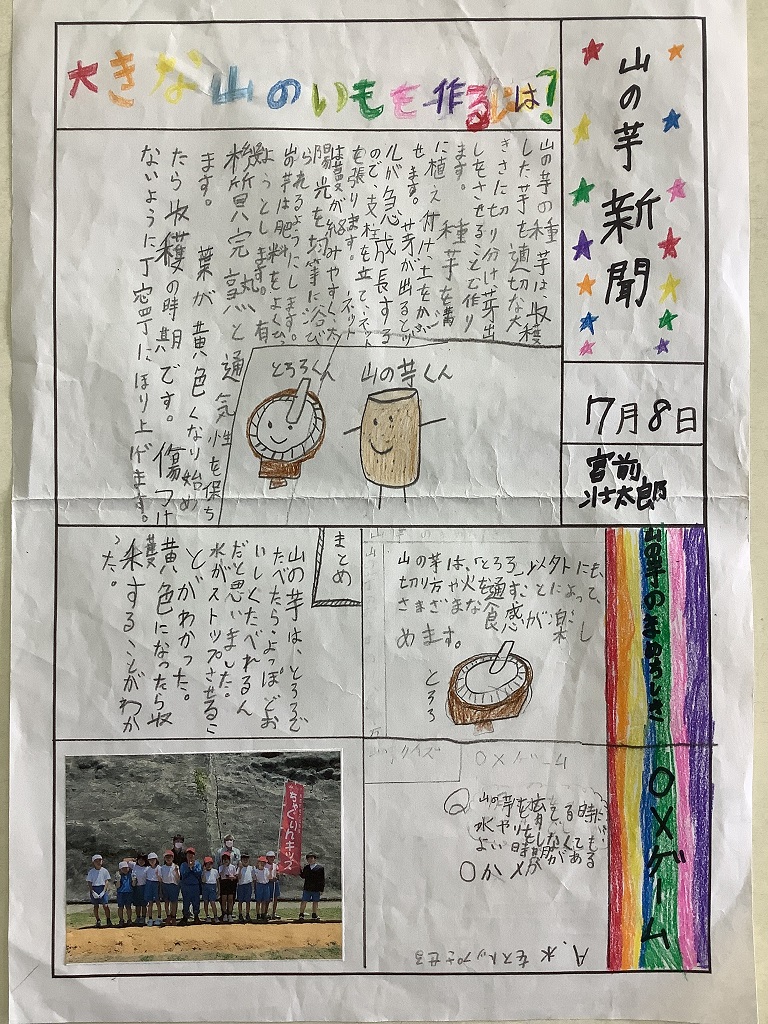 山の芋新聞
7月8日
宮前
壮太郎
大きな山のいもを作るには?
山の芋の種芋は、収穫
した芋を適切な大
きさに切り分け芽出
しをさせることで作り
ます。種芋を
に植え付け、土をかぶ
せます。芽が出るとツ
ルが急成長する
ので、支柱を立て、ネット
を張ります。ネット
は蔓が絡みやすく、太
陽光を均等に浴び
られるようにします。
山の芋は肥料をよくひ
ようとします。有
機質
完熟と通気性を保ち
ます。葉が黄色くなり始め
たら収穫の時期です。傷つけ
ないように丁寧にほり上げます。
とろろくん
山の芋くん
山の芋のすばらしさ
山の芋は、「とろろ」以外にも、
切り方や火を通すことによって、
さまざまな食感が楽し
めます。
とろろ
まとめ
山の芋は、とろろで
たべたら、よっぽどお
いしくたべれるん
だと思いました。
水がストップさせるこ
とがわかった。
黄色になったら収
穫することがわか
った。
OXゲーム
クイズ
OXゲーム
Q 山の芋を育てる時に
水やりをしなくても
よい時期がある
OかXか
A.水をストップさせる
ちゃぐりんキッズ